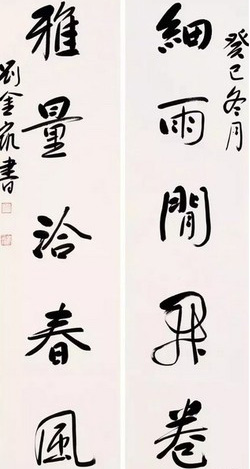 癸巳冬月
細雨閒開卷
雅量洽春風
劉金凱書